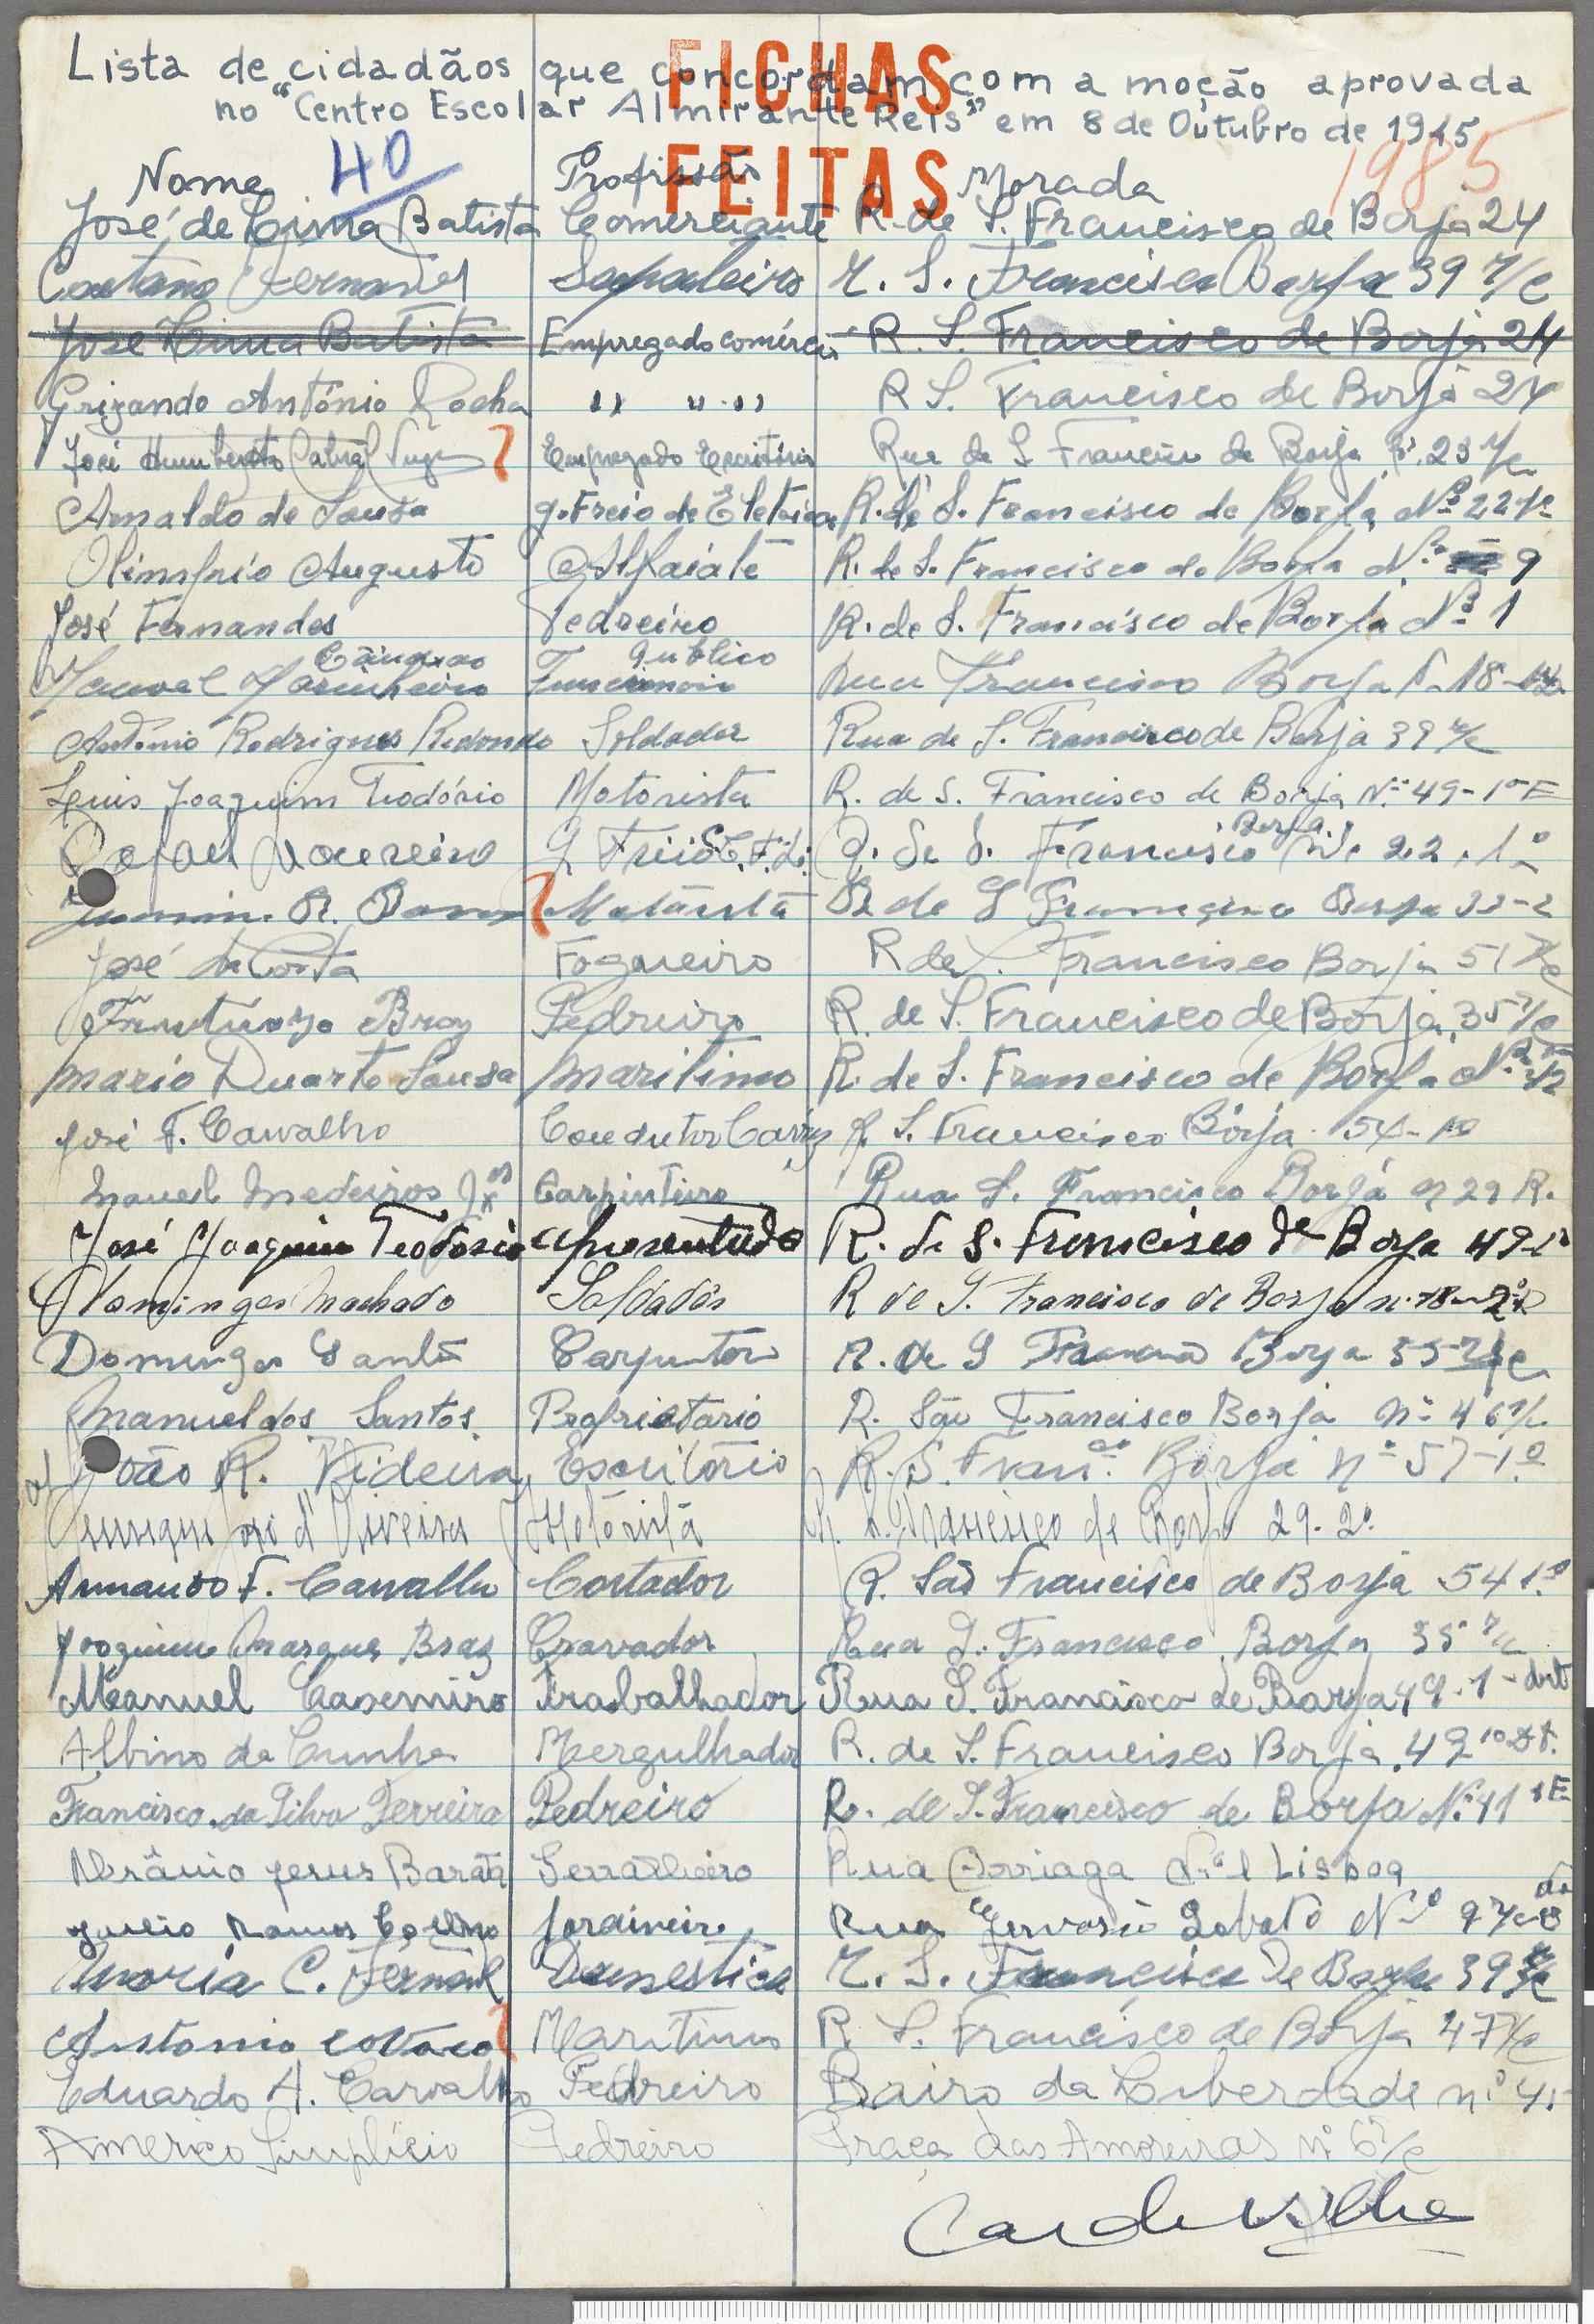 Lista de cidadãos que concordam com a moção aprovada
no "Centro Escolar Almirante Reis" em 8 de Outubro de 1945
FICHAS
FEITAS
40
1985
Nome Profissão Morada
José de Lima Batista Comerciante R. de S. Francisco de Borja 24
Caetano Fernandes Sapateiro R. S. Francisco Borja 39 r/c
José Lima Batista Empregado comércio R. S. Francisco de Borja 24
Grizando António Rocha " " " " R S. Francisco de Borja 24
José Humberto Cabral Empregado Escritório Rua de S Francisco de Borja 23 r/c
Arnaldo de Sousa g. Freio de Eletricos R. de S. Francisco de Borja Nº 22 1º
Olimpio Augusto Alfaiate R. de S. Francisco de Borja Nº 9
José Fernandes Pedreiro R. de S. Francisco de Borja Nº 1
Manuel Marinheiro Funcionario publico Rua Francisco Borja Nº 18
António Rodrigues Redondo Soldador Rua de S. Francisco de Borja 39 r/c
Luis Joaquim Teodório Motorista R. de S. Francisco de Borja Nº 49-1º E
Rafael g. Freio R. de S. Francisco Borja Nº 22, 1º
R. Motorista R de S Francisco Borja 33-2
José da Costa Fogueiro R de S. Francisco Borja 51 r/c
Frutuozo Braz Pedreiro R. de S. Francisco de Borja, 35 r/c
Mario Duarte Sousa Maritimo R. de S. Francisco de Borja Nº
José F. Carvalho Condutor Carris R. S. Francisco Borja 54-1º
Manuel Medeiros Carpinteiro Rua S. Francisco Borja nº 29 R.
José Joaquim Teodosio Aposentado R. de S. Francisco de Borja 49-1º
Domingos Machado Soldador R de S. Francisco de Borja nº 18-2º D
Domingos Santos Carpinteiro R. de S Francisco Borja 55 r/c
Manuel dos Santos Proprietario R. São Francisco Borja nº 46 r/c
João R. Videira Escritório R. S. Franco. Borja nº 57-1º
Henrique José d'Oliveira Motorista R. S. Francisco de Borja 29-2º
Armando F. Carvalho Cortador R. São Francisco de Borja 54 1º
Joaquim Marques Braz Gravador Rua S. Francisco Borja 35 r/c
Manuel Casemiro Trabalhador Rua S. Francisco de Borja 49-1-drt
Albino da Cunha Mergulhador R. de S. Francisco Borja, 49 1º Dt.
Francisco da Silva Ferreira Pedreiro R. de S. Francisco de Borja Nº 41 1 E
Abrânio Jesus Barata Serralheiro Rua Arriaga Nº 1 Lisboa
Julio Ramos Coelho Jardineiro Rua "Gervasio Lobato Nº 9 r/c
Maria C. Fernandes Domestica R. S. Francisco de Borja 39 r/c
Antonio Maritimo R S. Francisco de Borja 47 r/c
Eduardo A. Carvalho Pedreiro Bairo da Liberdade nº 41
Americo Simplício Pedreiro Praça das Amoreiras nº 6 r/c